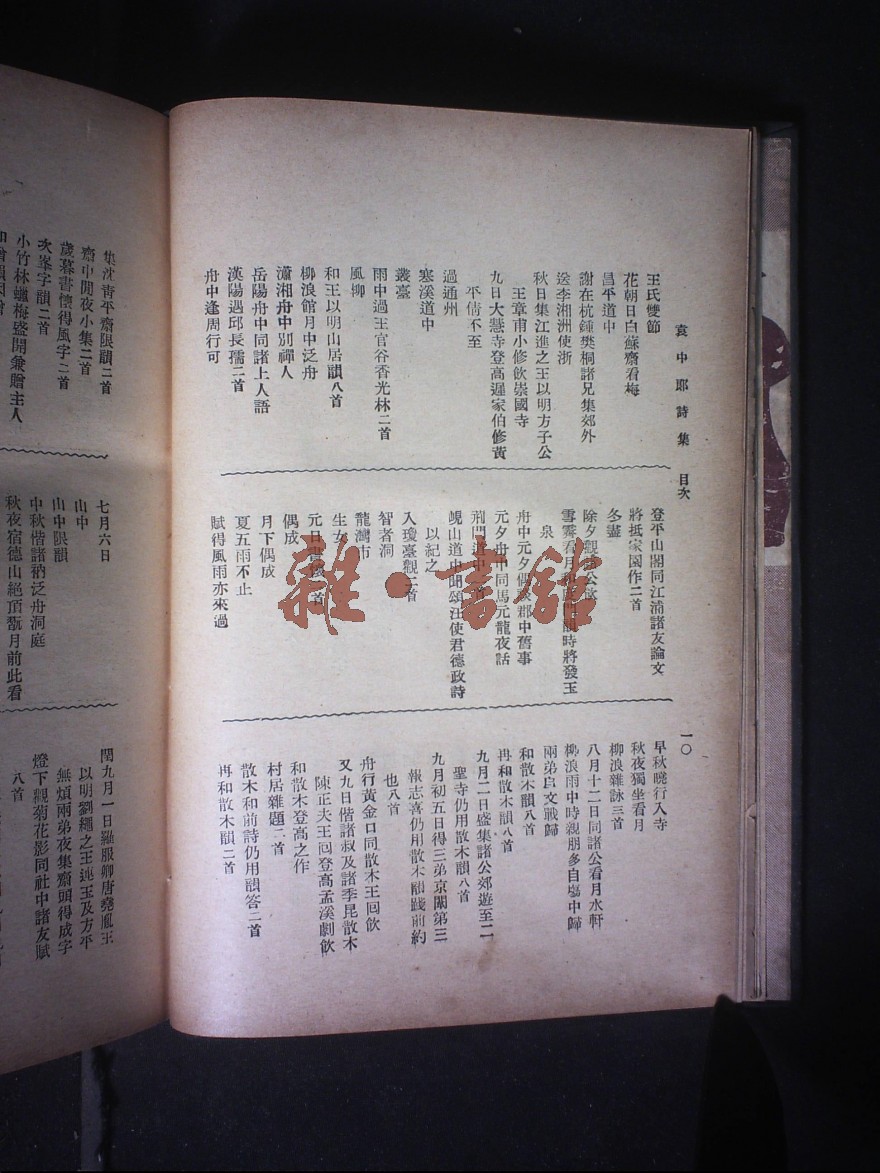 袁中郎詩集 目次
一〇
王氏雙節
花朝日白蘇齋看梅
昌平道中
謝在杭鍾樊桐諸兄集郊外
送李湘洲使浙
秋日集江進之王以明方子公
王章甫小修飲崇國寺
九日大慧寺登高遲家伯修黃
平倩不至
過通州
寒溪道中
叢臺
雨中過王官谷香光林二首
風柳
和王以明山居韻八首
柳浪館月中泛舟
瀟湘舟中別禪人
岳陽舟中同諸上人語
漢陽遇邱長孺二首
舟中逢周行可
登平山閣同江浦諸友論文
將抵家園作二首
冬盡
除夕觀
雪霽看月 時將發玉
泉
舟中元夕偶 郡中舊事
元夕舟中同馬元龍夜話
荊門道中 首
峴山道中聞頌汪使君德政詩
以紀之
入瓊臺觀二首
智者洞
龍灣市
生女
元日書 首
偶成
月下偶成
夏五雨不止
賦得風雨亦來過
早秋曉行入寺
秋夜獨坐看月
柳浪雜詠三首
八月十二日同諸公看月水軒
柳浪雨中時親朋多自場中歸
兩弟自文戰歸
和散木韻八首
再和散木韻八首
九月二日盛集諸公郊遊至二
聖寺仍用散木韻八首
九月初五日得三弟京闈第三
報志喜仍用散木韻踐前約
也八首
舟行黃金口同散木王回飲
又九日偕諸叔及諸季昆散木
陳正夫王回登高孟溪劇飲
和散木登高之作
村居雜題二首
散木和前詩仍用韻答二首
再和散木韻二首
集沈青平齋限韻二首
齋中閒夜小集二首
歲暮書懷得風字二首
次峯字韻二首
小竹林蠟梅盛開兼贈主人
七月六日
山中
山中限韻
中秋偕諸衲泛舟洞庭
秋夜宿德山絕頂翫月前此看
閏九月一日羅服卿唐堯胤王
以明劉繩之王遶玉及方平
無煩兩弟夜集齋頭得成字
燈下觀菊花影同社中諸友賦
八首
雜·書館